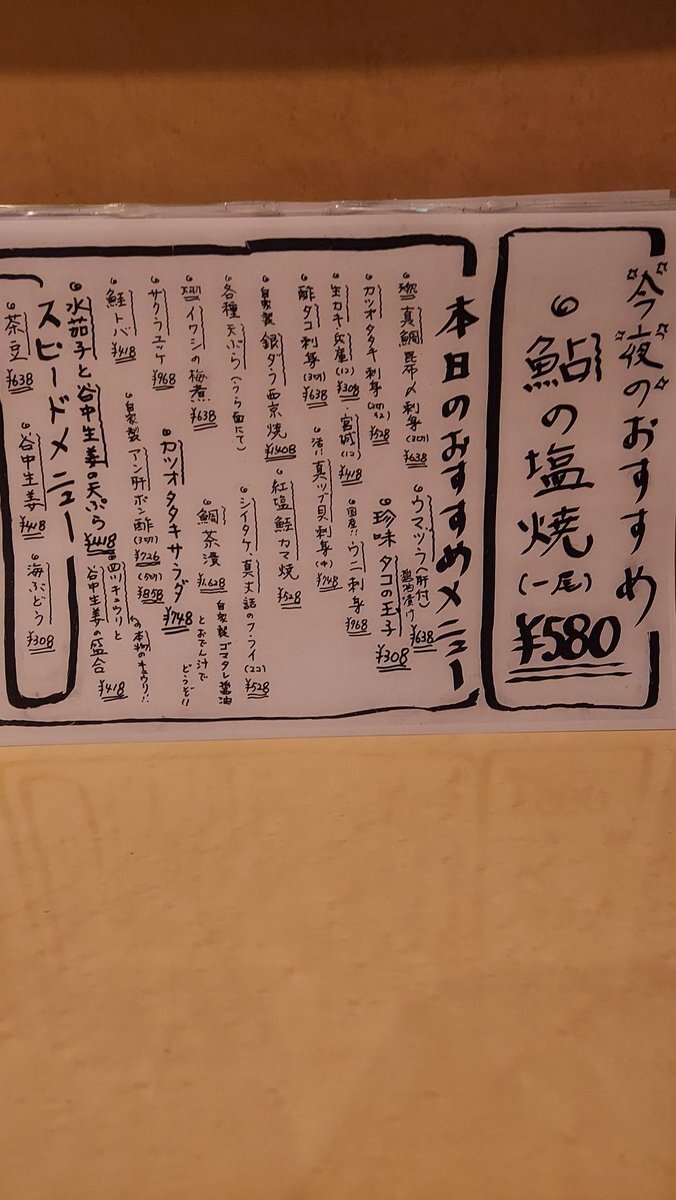 今夜のおすすめ
鮎の塩焼(一尾)¥580
本日のおすすめメニュー
真鯛昆布〆刺身(3切)¥638
ウマヅラ(肝付)醤油漬け¥638
カツオタタキ刺身 ¥528
珍味タコの玉子¥308
生カキ兵庫(1コ)¥308・宮城(1コ)¥418
国産!!ウニ刺身¥968
酢タコ刺身(3切)¥638
活!!真ツブ貝刺身(中)¥748
自家製銀ダラ西京焼¥1408
紅塩鮭カマ焼¥528
各種天ぷら(うら面にて)
シイタケ真丈詰のフライ(2コ)¥528
イワシの梅煮¥638
鯛茶漬¥1628自家製ゴマタレ醤油とおでん汁でどうぞ!!
サクラユッケ¥968
カツオタタキサラダ¥748
鮭トバ¥418
自家製アン肝ポン酢(3切)¥726(5切)¥858
水茄子と谷中生姜の天ぷら¥418
四川キュウリと谷中生姜の盛合¥418
本物のキュウリ!!
スピードメニュー
茶豆¥638
谷中生姜¥418
海ぶどう¥308